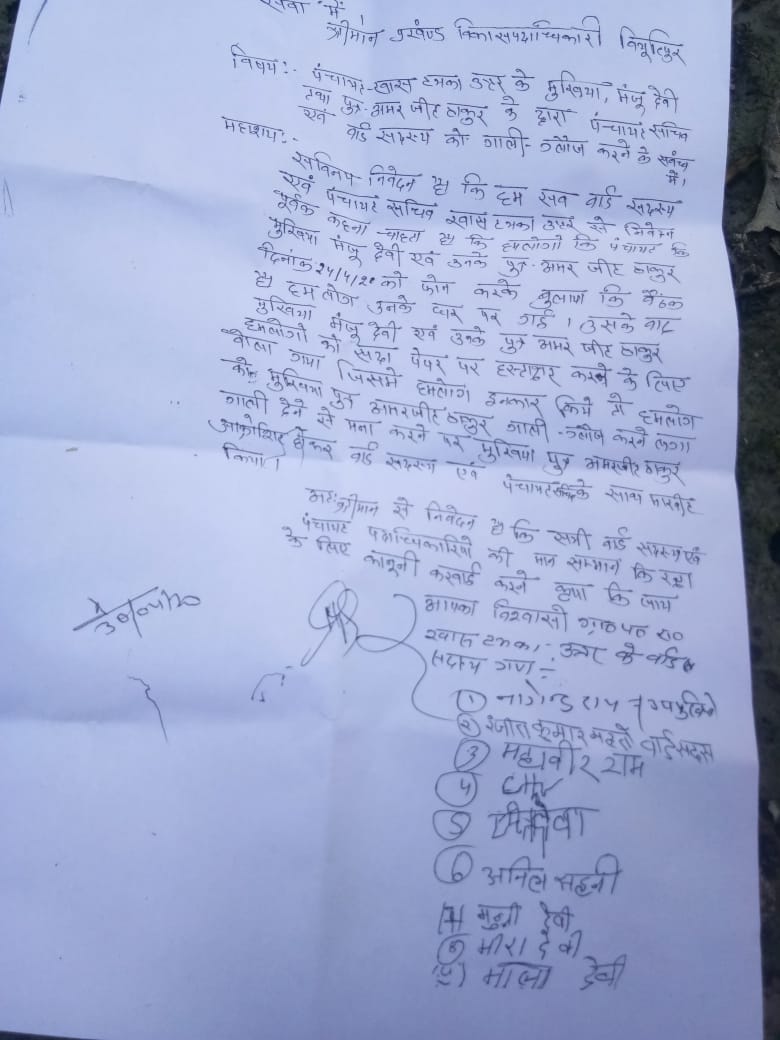 सेवा में,
श्रीमान प्रखंण्ड विकास पदाधिकारी विभूतिपुर
विषय:- पंचायत-खास टभका उत्तर के मुखिया, मंजू देवी
तथा पुत्र-अमर जीत ठाकुर के द्वारा पंचायत सचिव
एवं वार्ड सदस्य को गाली-गलौज करने के संबंध में।
महाशय:-
सविनय निवेदन है कि हम सब वार्ड सदस्य
एवं पंचायत सचिव खास टभका उत्तर से निवेदन
पूर्वक कहना चाहता है कि हमलोगो कि पंचायत कि
मुखिया मंजू देवी एवं उनके पुत्र-अमर जीत ठाकुर
दिनांक 24/4/20 को फोन करके बुलाए कि बैठक
है हम लोग उनके द्वार पर गई। उसके बाद
मुखिया मंजू देवी एवं उनके पुत्र अमर जीत ठाकुर
हमलोगो को सादा पेपर पर हस्ताक्षर करने के लिए
बोला गया जिसमे हमलोग इनकार किये तो हमलोग
को मुखिया पुत्र अमरजीत ठाकुर गाली-गलौज करने लगा
गाली देने से मना करने पर मुखिया पुत्र अमरजीत ठाकुर
आक्रोशित होकर वार्ड सदस्य एवं पंचायत सचिव के साथ मारपीट
किया।
अतः श्रीमान से निवेदन है कि सभी वार्ड सदस्य एवं
पंचायत पदाधिकारियो की मान सम्मान कि रक्षा
के लिए कानूनी करवाई करने कृपा कि जाय
आपका विश्वासी ग्रा० पं० रा०
खास टभका उत्तर के वार्ड
सदस्य गण:-
① नागेन्द्र राय उपमुखिया
② रंजीत कुमार महतो वार्ड सदस्य
③ महावीर राम
④
⑤
⑥ अनिल सहनी
7 मुन्नी देवी
⑧ मीरा देवी
(9) माला देवी